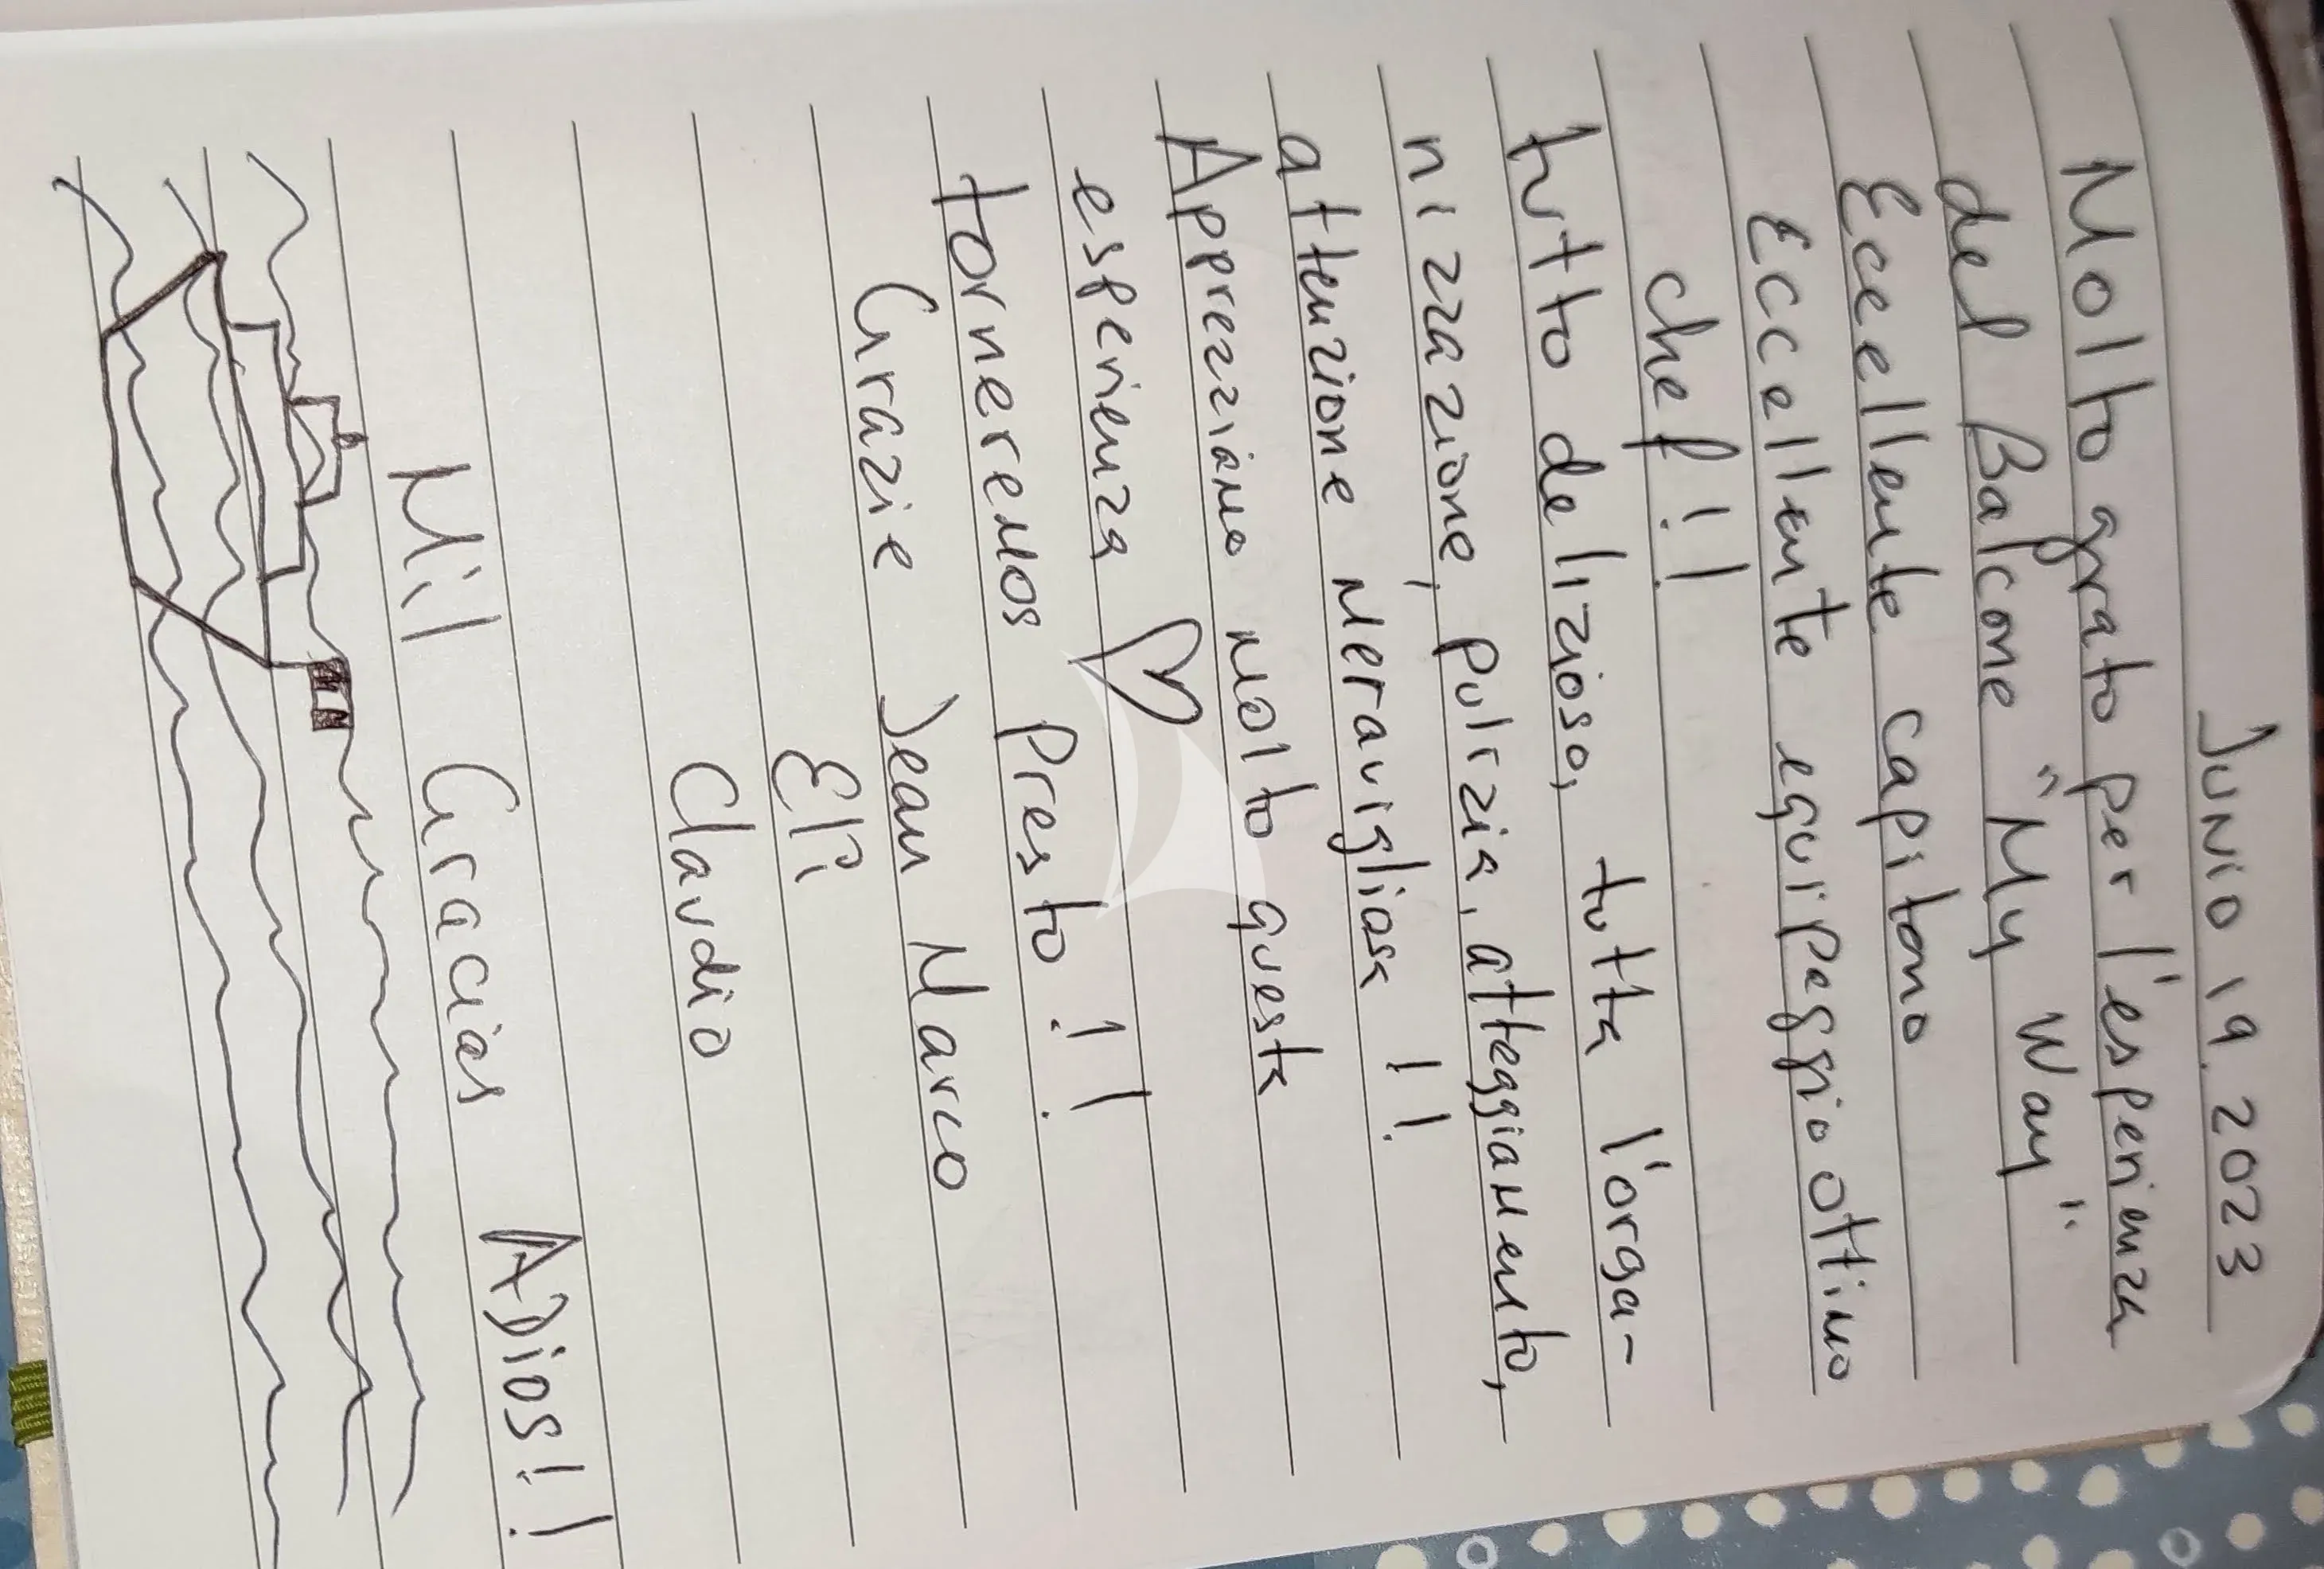 Junio 19. 2023
Molto grato per l'esperienza
del Balcone "My Way".
Eccellente capitano
Eccellente equipaggio ottimo
chef!!
tutto delizioso, tutta l'orga-
nizzazione, pulizia, atteggiamento,
attenzione meravigliosa!!
Apprezziamo molto questa
esperienza ♡
torneremos Presto!!
Grazie Jean Marco
Eli
Claudio
Mil Gracias ADios!!